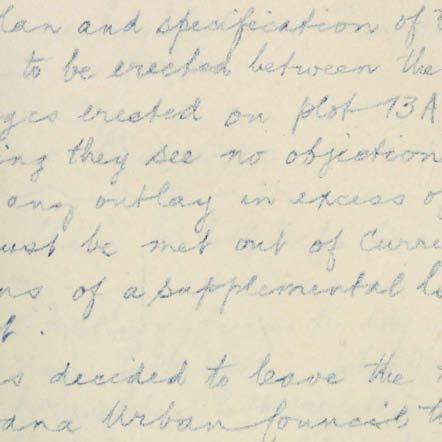 lan and specification of
to be erected between the
ges erected on plot 73A
ing they see no objection
any outlay in excess o
ust be met out of Curre
ns of a supplemental
t.
s decided to leave the
ana Urban Council t